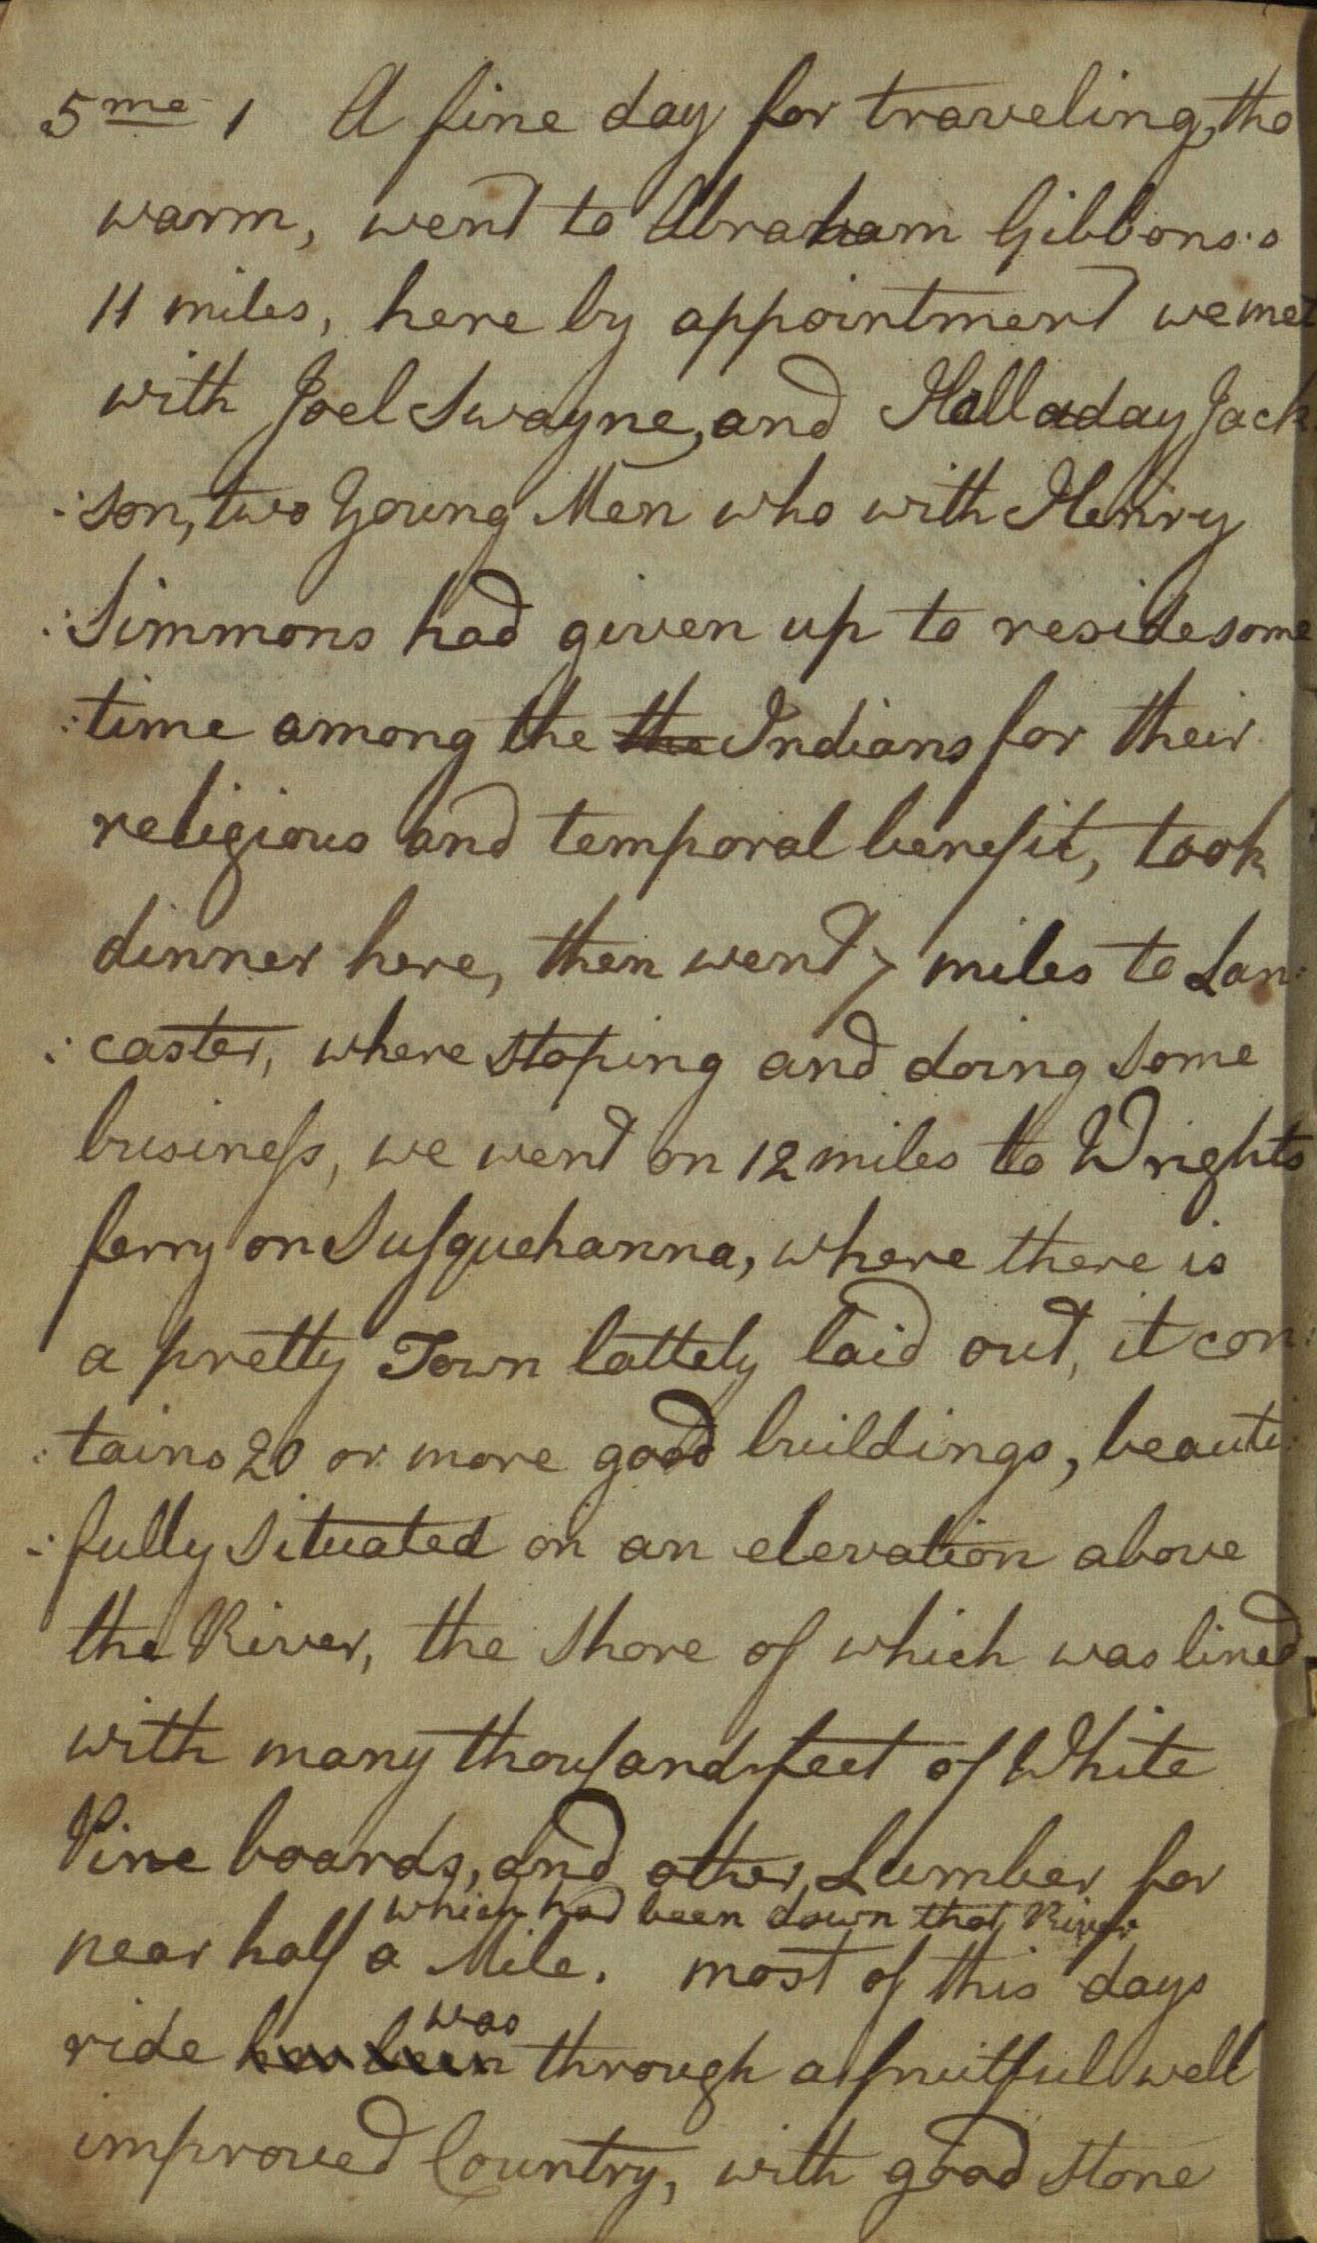 5me 1 A fine day for traveling, tho
warm, went to Abraham Gibbons:s
11 miles, here by appointment we met
with Joel Swayne, and Halladay Jack
:son, two Young Men who with Henry
:Simmons had given up to reside some
:time among the the Indians for their
religious and temporal benefit, took
dinner here, then went 7 miles to Lan:
:caster, where stoping and doing some
busineſs, we went on 12 miles to Wrights
ferry on Suſquehanna, where there is
a pretty Town lattely laid out, it con:
:tains 20 or more good buildings, beauti:
:fully situated on an elevation above
the River, the shore of which was lined
with many thouſand feet of White
Pine boards, and other Lumber for
which had been down that River
near half a Mile. most of this days
was
ride has been through a fruitful well
improved Country, with good stone